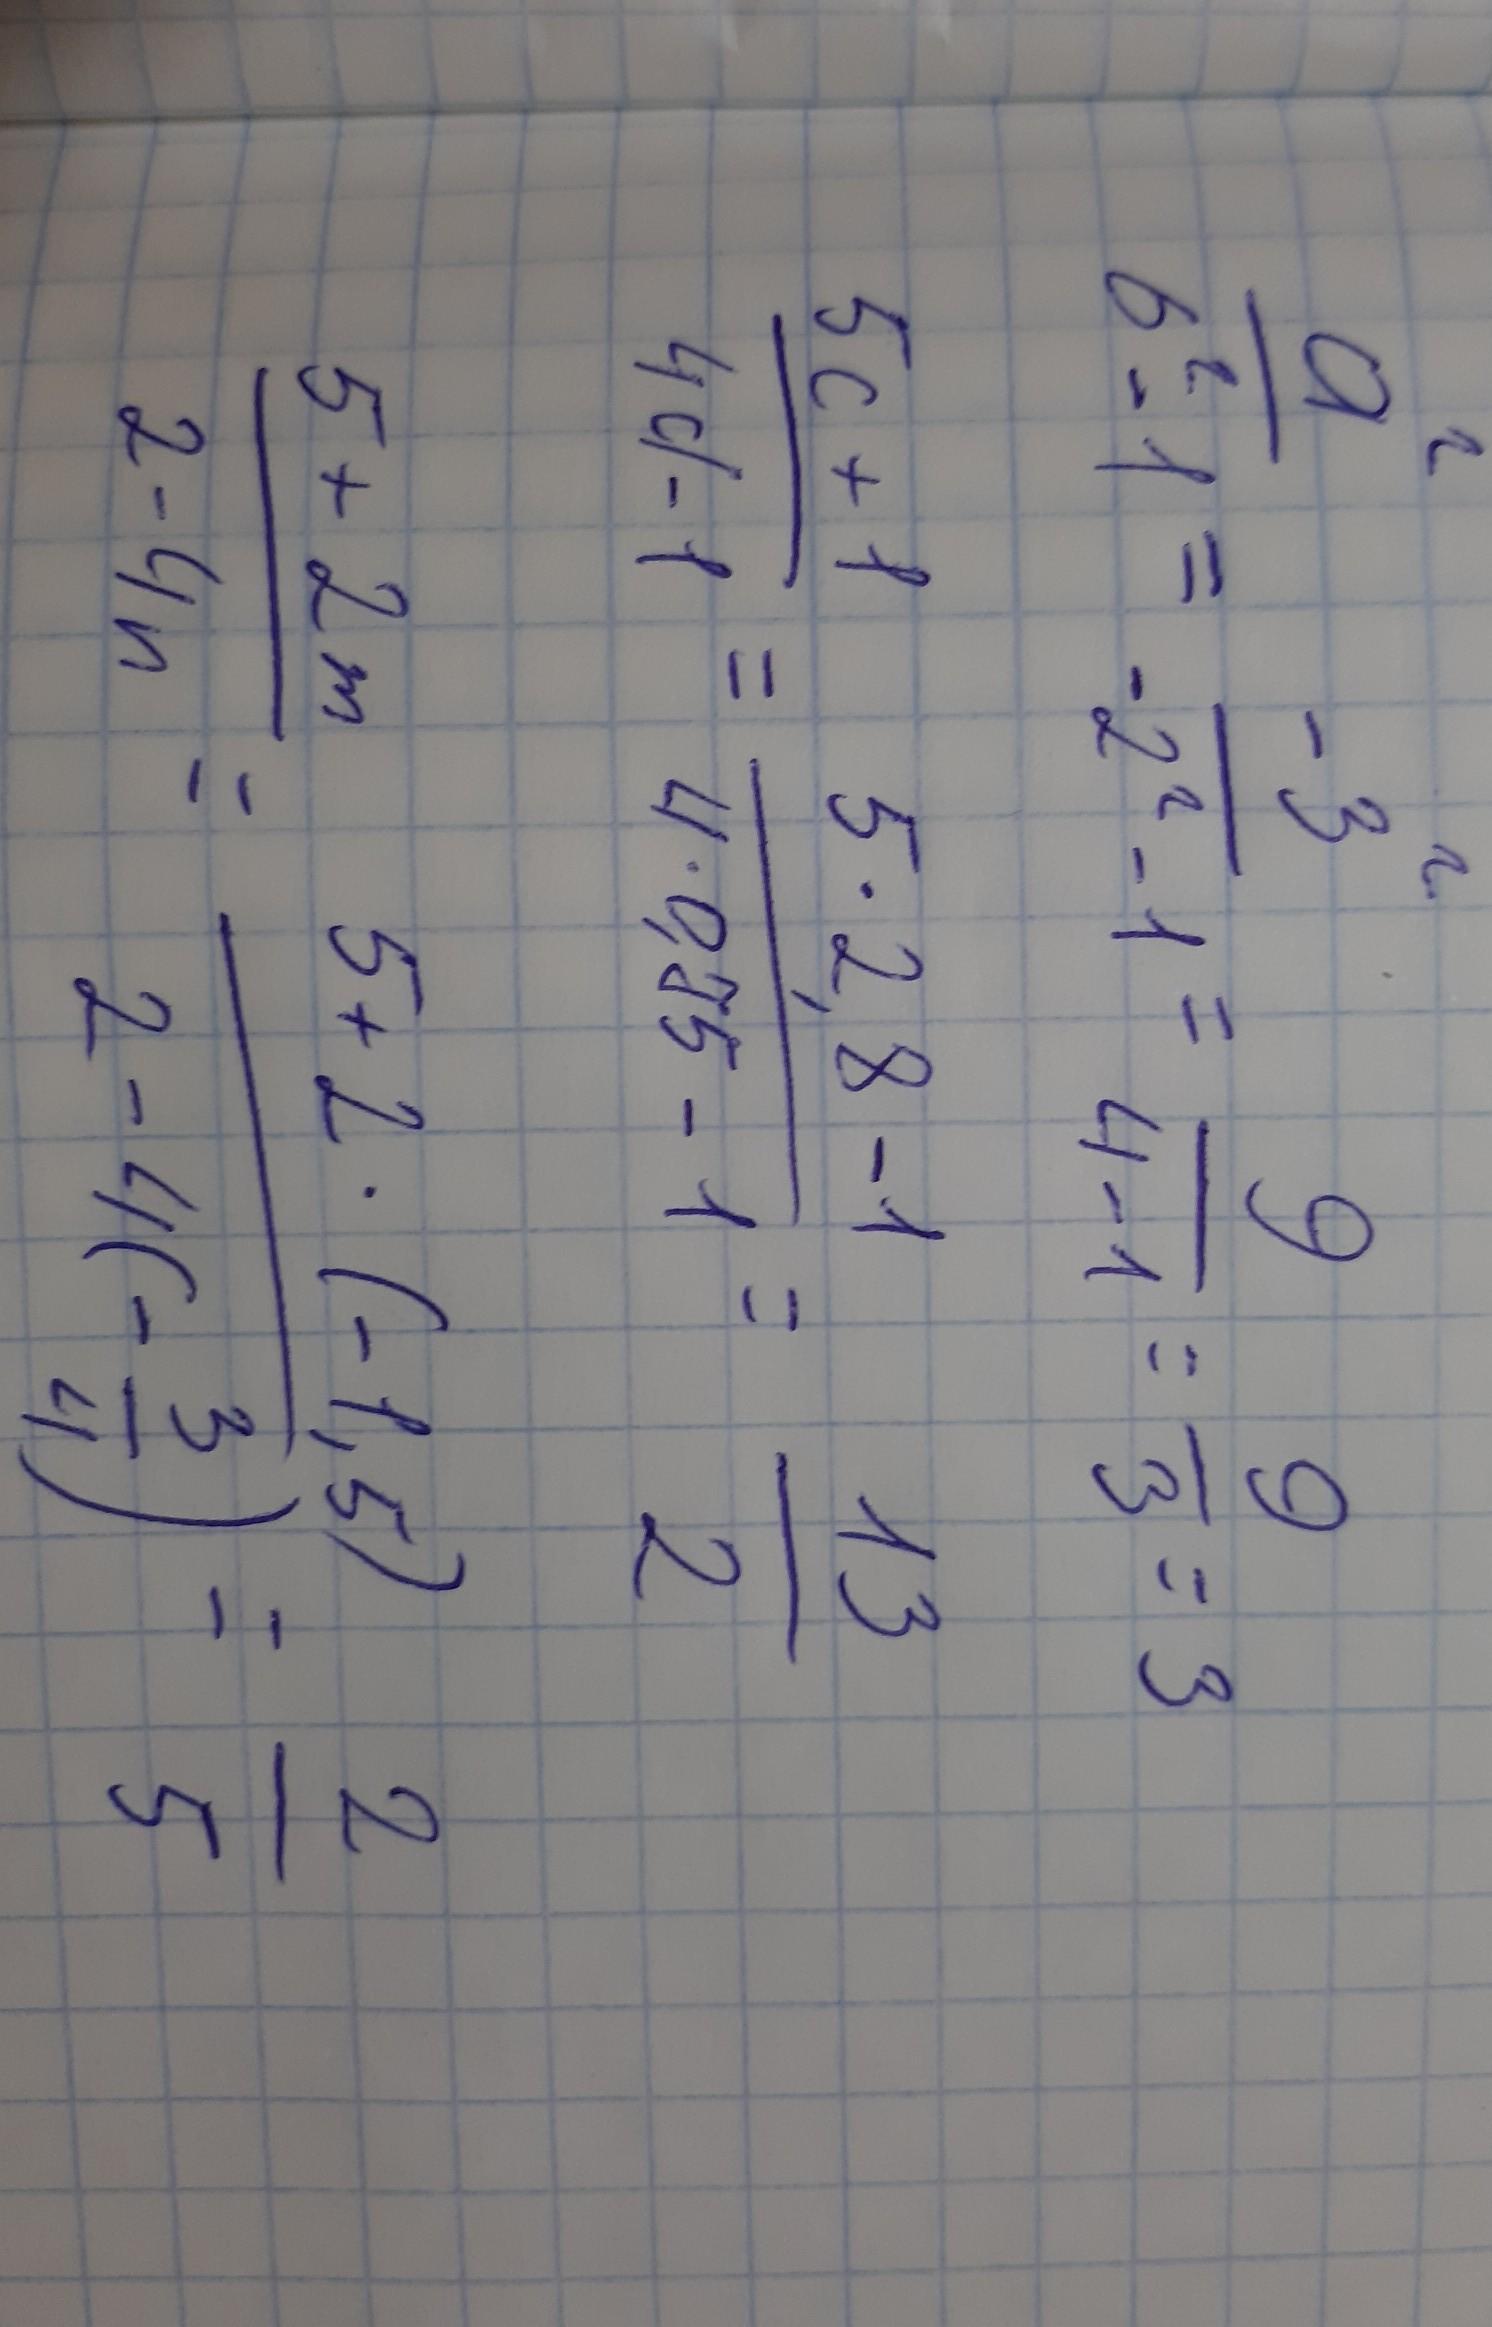 a² / b² - 1 = -3² / -2² - 1 = 9 / 4 - 1 = 9 / 3 = 3
5c + 1 / 4d - 1 = 5 · 2,8 - 1 / 4 · 0,75 - 1 = 13 / 2
5 + 2m / 2 - 4n = 5 + 2 · (-1,5) / 2 - 4(-3/4) = 2 / 5